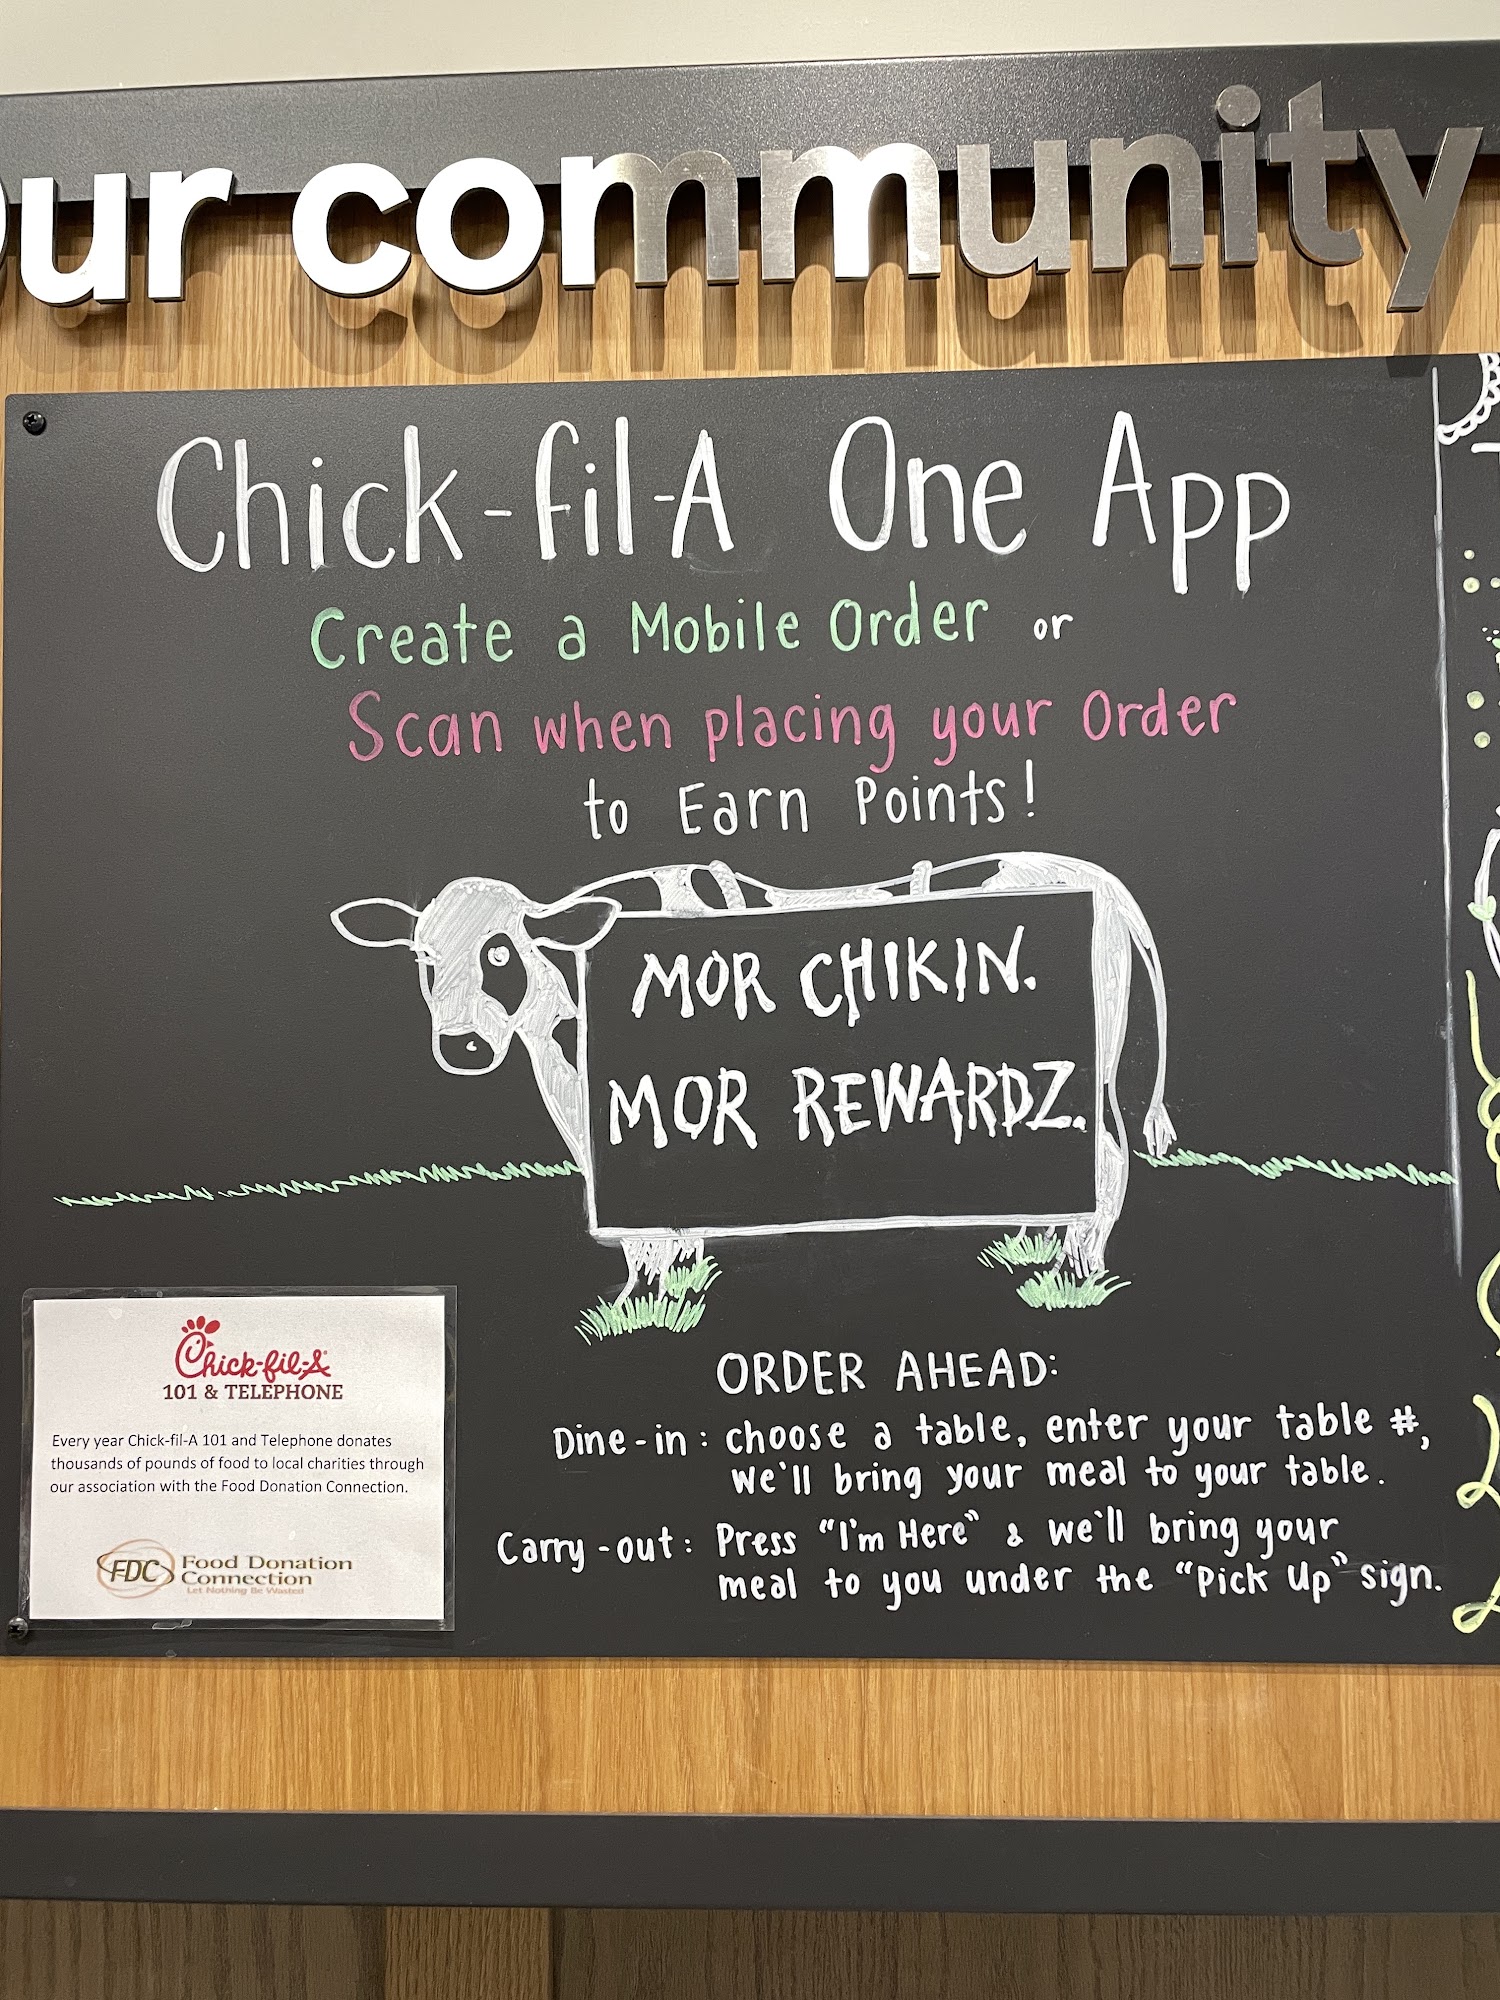 our community
Chick-fil-A One App
Create a Mobile Order or
Scan when placing your Order
to Earn Points!
MOR CHIKIN.
MOR REWARDZ.
Chick-fil-A
101 & TELEPHONE
Every year Chick-fil-A 101 and Telephone donates
thousands of pounds of food to local charities through
our association with the Food Donation Connection.
FDC Food Donation
Connection
Let Nothing Be Wasted
ORDER AHEAD:
Dine-in: choose a table, enter your table #,
we'll bring your meal to your table.
Carry-out: Press "I'm Here" & we'll bring your
meal to you under the "Pick Up" sign.